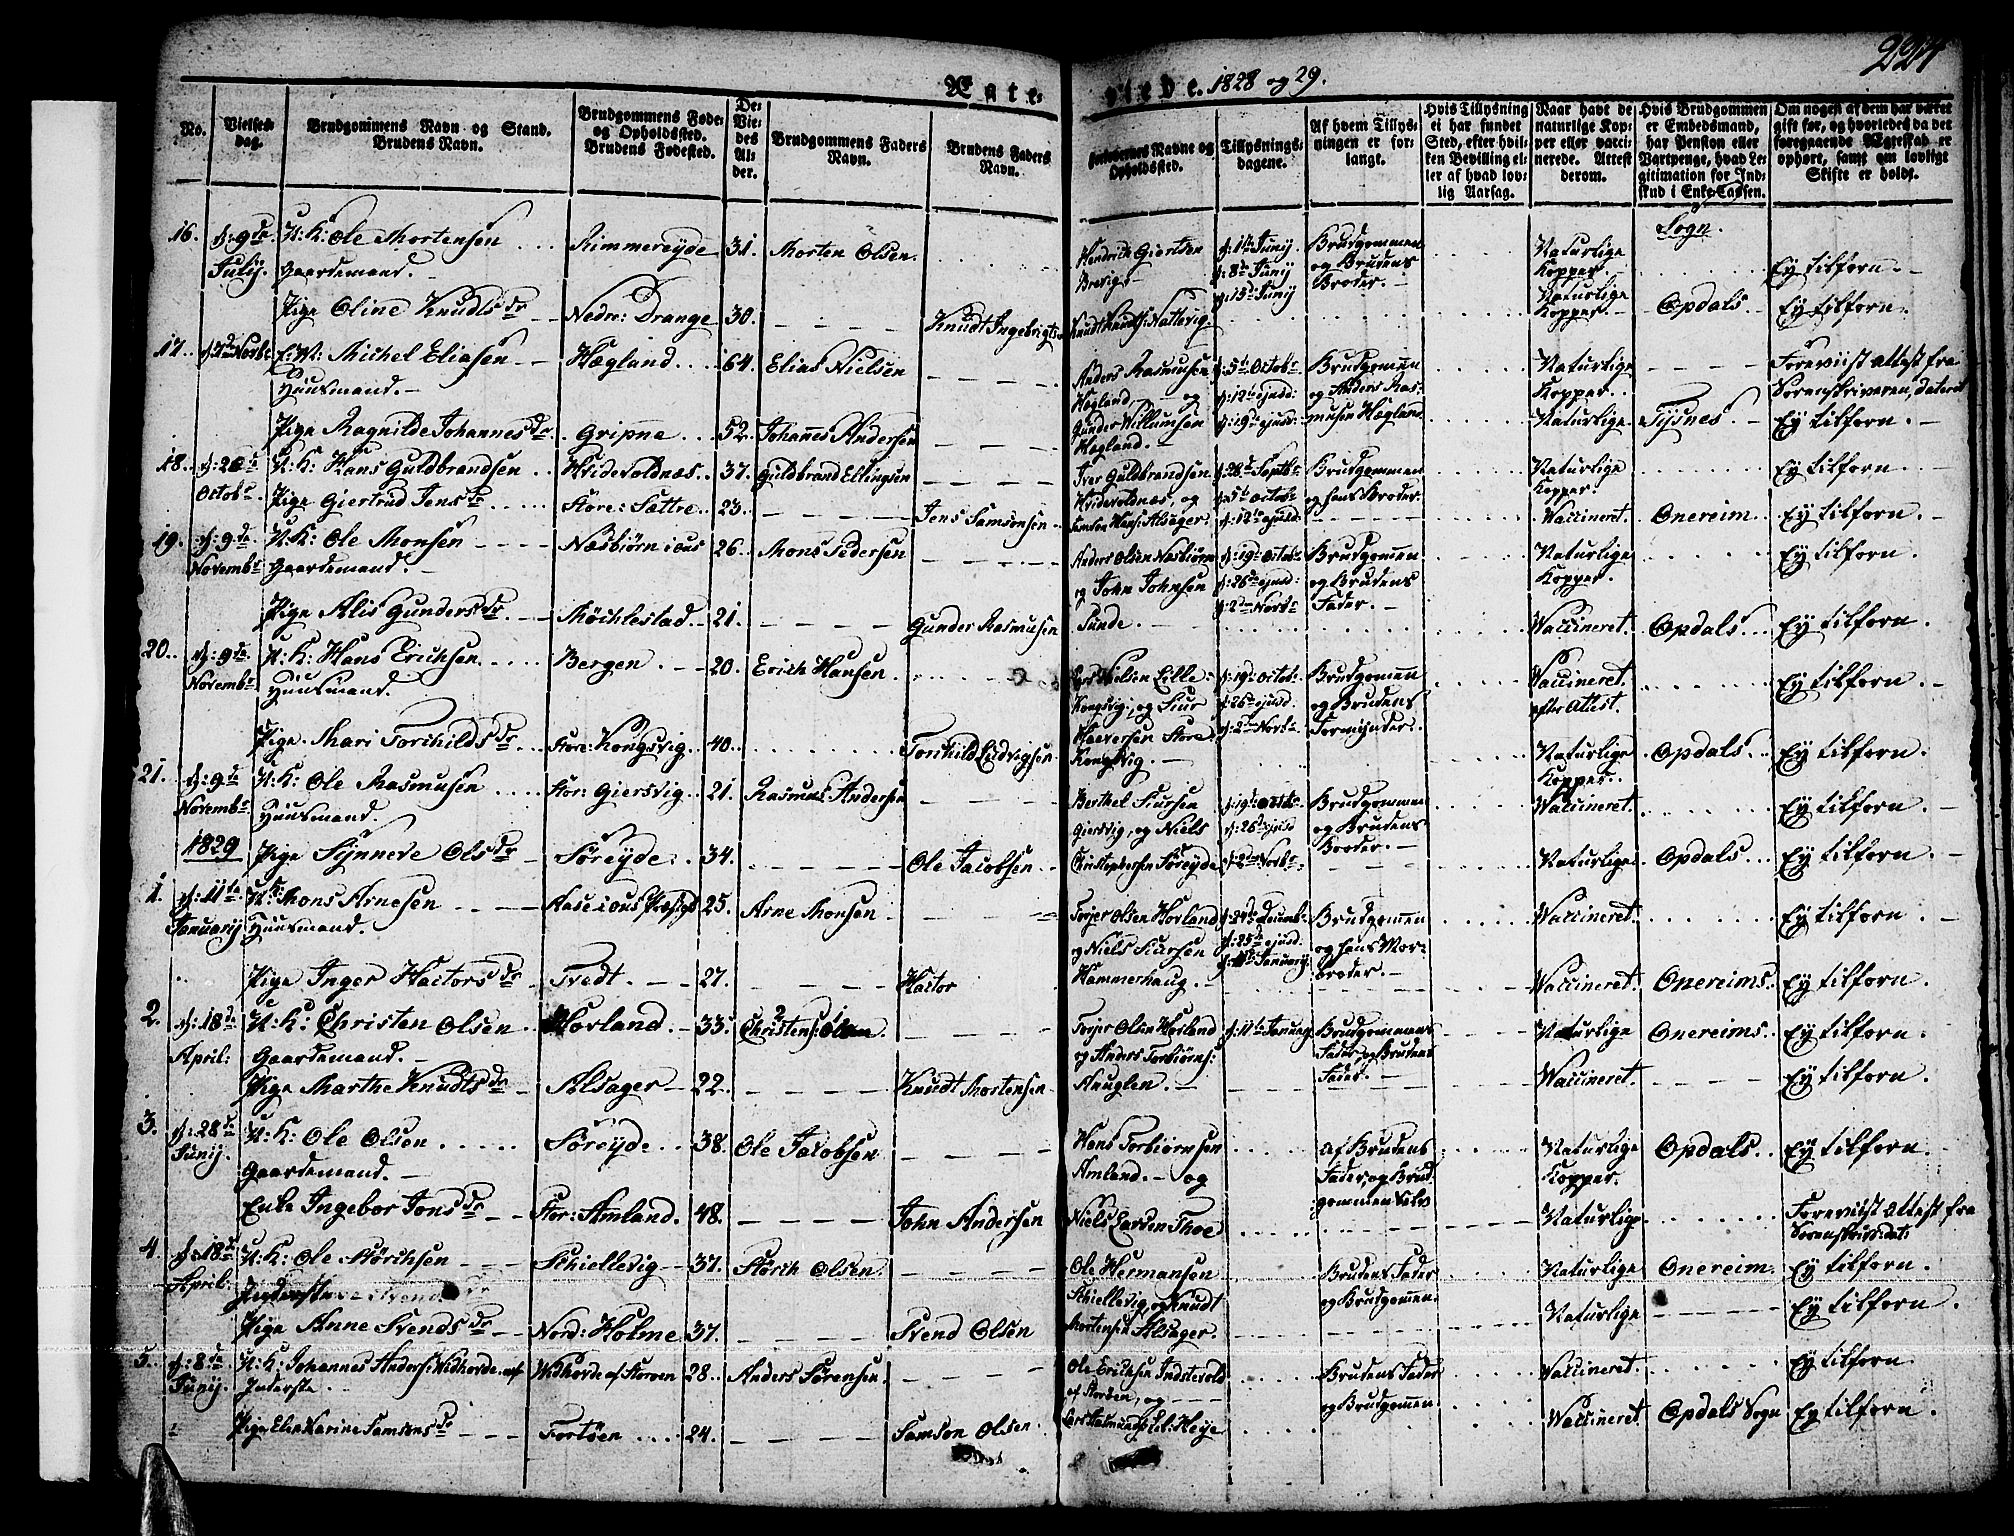 224
Egte- viede. 1828 og 29.
No.
Vielses-
dag.
Brudgommens Navn og Stand.
Brudens Navn.
Brudgommens Føde-
og Opholdssted.
Brudens Fødested.
De
Vie-
des
Al-
der.
Brudgommens Faders
Navn.
Brudens Faders
Navn.
Forlovernes Navne og
Opholdssted.
Tillysnings-
dagene.
Af hvem Tillys-
ningen er for-
langt.
Hvis Tillysning
ei har fundet
Sted, efter hvil-
ken Bevilling el-
ler af hvad lov-
lig Aarsag.
Naar havt de
naturlige Kop-
per eller vacci-
nerede. Attest
derom.
Hvis Brudgommen
er Embedsmand,
har Pension eller
Vartpenge, hvad Le-
gitimation for Ind-
skud i Enke-Cassen.
Om nogen af dem har været
gift før, og hvorledes da det
foregaaende Ægteskab er
ophørt, samt om lovligt
Skifte er holdt.
Sogn.
16. d: 9de Julij. U: K: Ole Mortensen Rimmereyde 31. Morten Olsen.
Gaardemand.
Hendrich Giertsen Brevig d: 1te Junij d: 8de Junij d: 15de Junij
Brudgommen og Brudens Broder.
Naturlige Kopper. Ey tilforn.
Pige Oline Knudsdr Nedre: Drange 30. Knudt Ingebrigts:
Naturlige Kopper. Opdals Ey tilforn.
17. E: M: Michel Eliasen Hægland 64. Elias Nielsen
Huusmand.
Anders Rasmusen Hægland, og d: 5te Octobr d: 12te ejusd: d: 19de ejusd:
Brudgommen og Anders Rasmusen Hægland
Naturlige Kopper. Foreviist attest fra Sorenskriveren, dateret
Pige Ragnilde Johannesdr Gripne 52. Johannes Andersen
Gunder Willumsen Hægland.
Naturlige Tysnes Ey tilforn.
18. Octobr U: K: Hans Guldbrandsen Hvidevoldnæs 37. Guldbrand Ellingsen
Iver Guldbrandsen Hvidevoldnæs, og d: 28de Septbr d: 5te Octobr d: 12te ejusd:
Brudgommen og hans Broder.
Naturlige Kopper. Ey tilforn.
Pige Giertrud Jensdr Store: Sættre 23. Jens Samsonsen
Vaccineret. Onereim Ey tilforn.
19. d: 9de Novembr U: K: Ole Monsen Næsbiørn i ous 26. Mons Pedersen
Gaardemand.
Anders Olsen Næsbiørn og John Johnsen Sunde. d: 19de Octobr d: 26de ejusd: d: 2den Novbr
Brudgommen og Brudens Fader.
Naturlige Kopper. Ey tilforn.
Pige Alis Gundersdr Møchlestad 21. Gunder Rasmusen
Vaccineret. Opdals Ey tilforn.
20. d: 9de Novembr U: K: Hans Erichsen Bergen 20. Erich Hansen
Huusmand.
Lars Nielsen Lille Kongsvig, og Siur Haaversen Store Kongsvig. d: 19de Octobr d: 26de ejusd d: 2den Novbr
Brudgommen og Brudens Formynder.
Vaccineret. efter Attest. Ey tilforn.
Pige Mari Torchildsdr Store: Kongsvig 40. Torchild Ludvigsen
Naturlige Kopper. Opdals Ey tilforn.
21. d: 9de Novembr U: K: Ole Rasmusen Stor: Giersvig 21. Rasmus Andersen
Huusmand.
Berthel Siursen Giersvig, og Niels Christophersen Søreyde d: 19de Octbr d: 26de ejusd d: 2den Novbr
Brudgommen og Brudens Broder.
Vaccineret. Ey tilforn.
Pige Synneve Olsdr Søreyde 34. Ole Jacobsen
Naturlige Opdals Ey tilforn.
1829
1. d: 11te Januarij U: K: Mons Arnesen Aase i ous Præstgd 25. Arne Monsen
Huusmand.
Torger Olsen Hovland og Niels Siursen Hammerhaug.
Brudgommen og hans Morbroder.
Vaccineret. Ey tilforn.
Pige Inger Hactorsdr Tvedt 27. Hactor
Vaccineret. Onereims Ey tilforn.
2. d: 18de April: U: K: Christen Olsen Hovland 33. Christens: Olsen
Gaardemand.
Torger Olsen Hovland og Anders Torbiørns: Hauglen. d: 11te Januar
Brudgommens Fader, og Brudens Fader.
Naturlige Onereims Ey tilforn.
Pige Marthe Knudtsdr Alsager 22. Knudt Mortensen
Vaccineret. Ey tilforn.
3. d: 28de Junij. U: K: Ole Olsen Søreyde 38. Ole Jacobsen
Gaardemand.
Hans Torbiørnsen Amland. og
Af Brudens Fader, og Brudgommen selv
Naturlige Kopper. Opdals Ey tilforn.
Enke Ingebor Jonsdr Stor: Amland. 48. John Andersen
Niels Larsen Thoe
Naturlige Foreviist attest fra Sorenskriv: dat:
4. d: 18de April: U: K: Ole Størchsen Schiellevig 37. Størch Olsen
Inderste
Ole Hermansen Schiellevig, og Knudt Mortensen Alsager.
Brudens Fader og Brudgommen.
Naturlige Onereim Ey tilforn.
Pige Anne Svendsdr Nord: Holme 37. Svend Olsen
Naturlige Ey tilforn.
5. d: 8de Junij. U: K: Johannes Anders: Widhovde Widhovde af Storøen 28. Anders Sørensen.
Inderste.
Ole Erichsen Indstevold af Storøen, og
Brudens Fader og Brudgommen.
Vaccineret. Ey tilforn
Pige Elen Karine Samsonsdr Tortøen 24. Samson Olsen
Vaccineret Opdals Sogn Ey tilforn